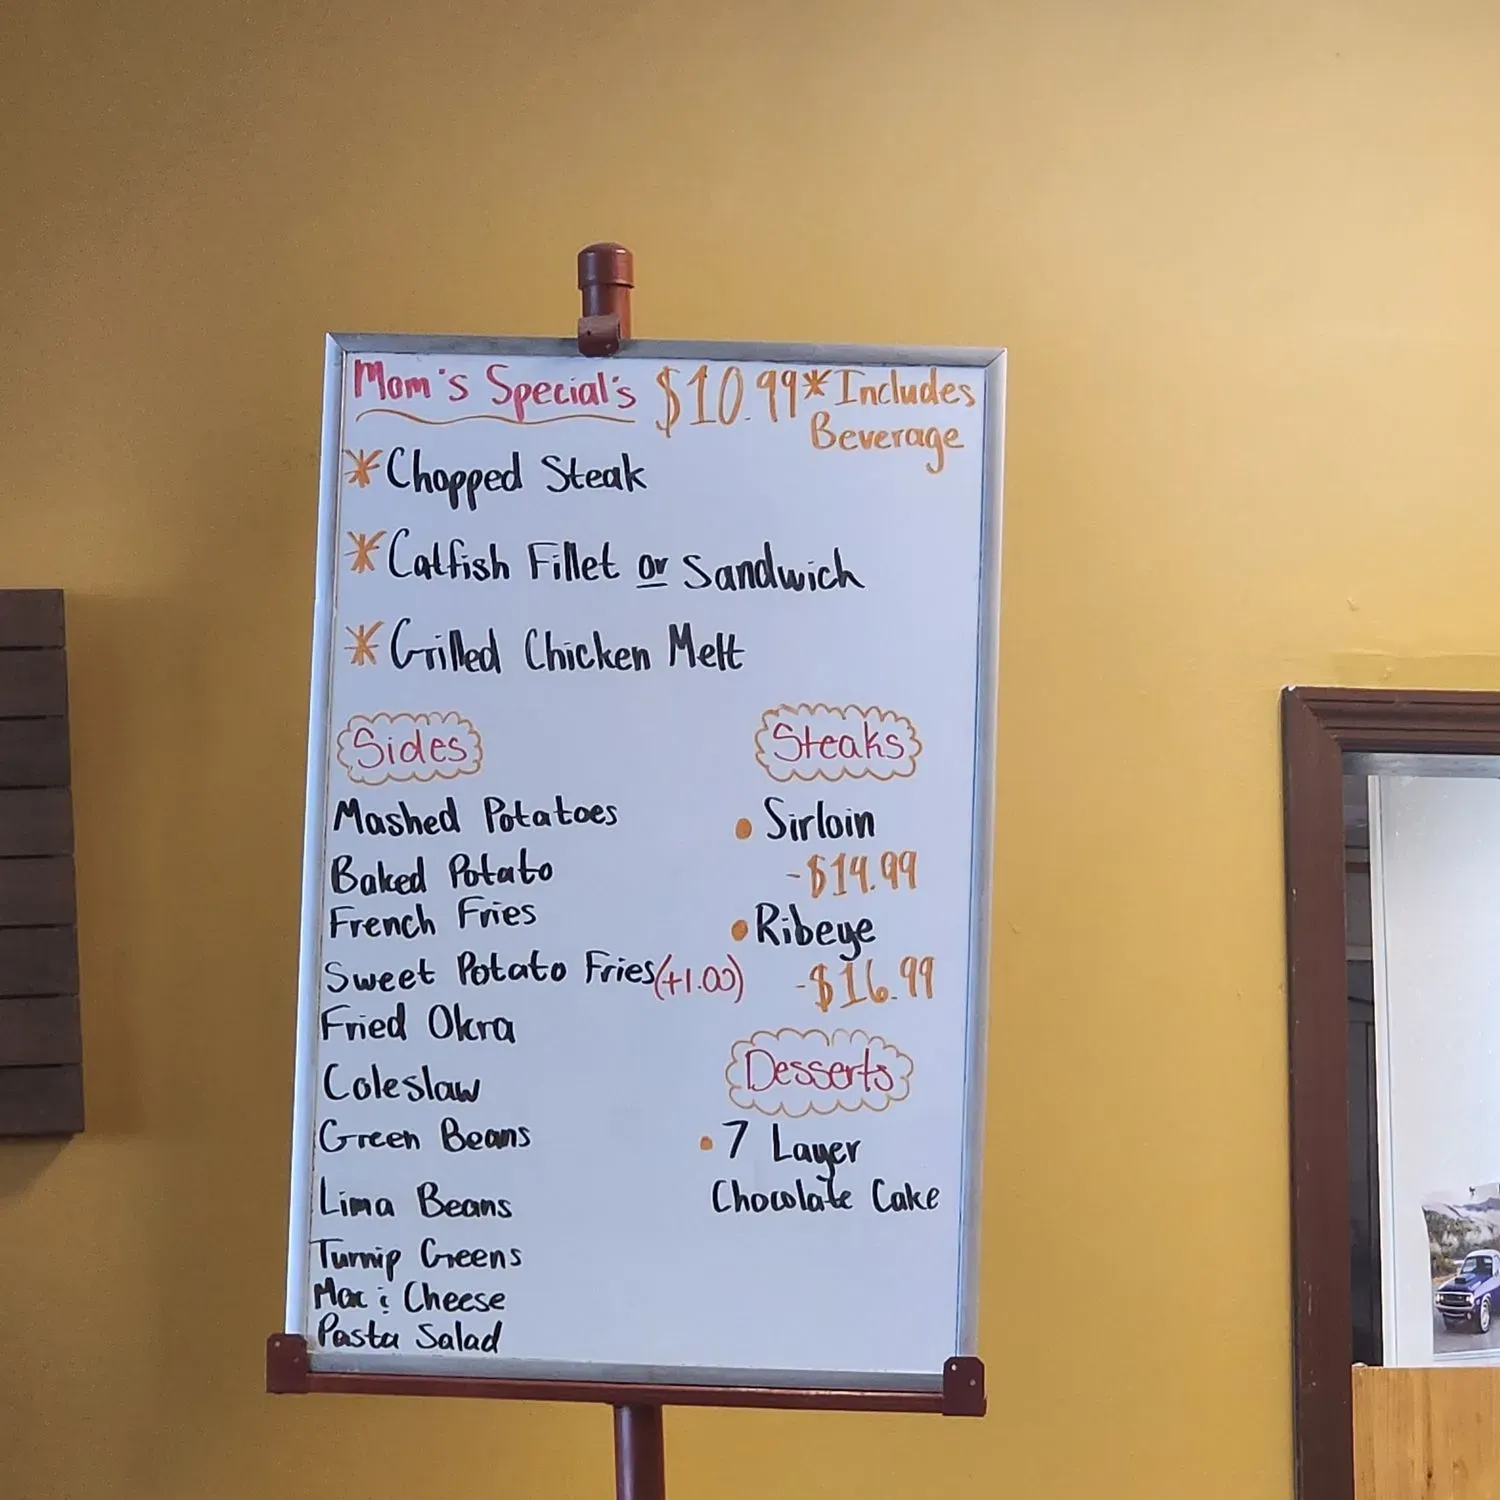 Mom's Special's $10.99 *Includes
Beverage
*Chopped Steak
*Catfish Fillet or Sandwich
*Grilled Chicken Melt
Sides
Mashed Potatoes
Baked Potato
French Fries
Sweet Potato Fries (+1.00)
Fried Okra
Coleslaw
Green Beans
Lima Beans
Turnip Greens
Mac & Cheese
Pasta Salad
Steaks
• Sirloin
-$14.99
• Ribeye
-$16.99
Desserts
• 7 Layer
Chocolate Cake